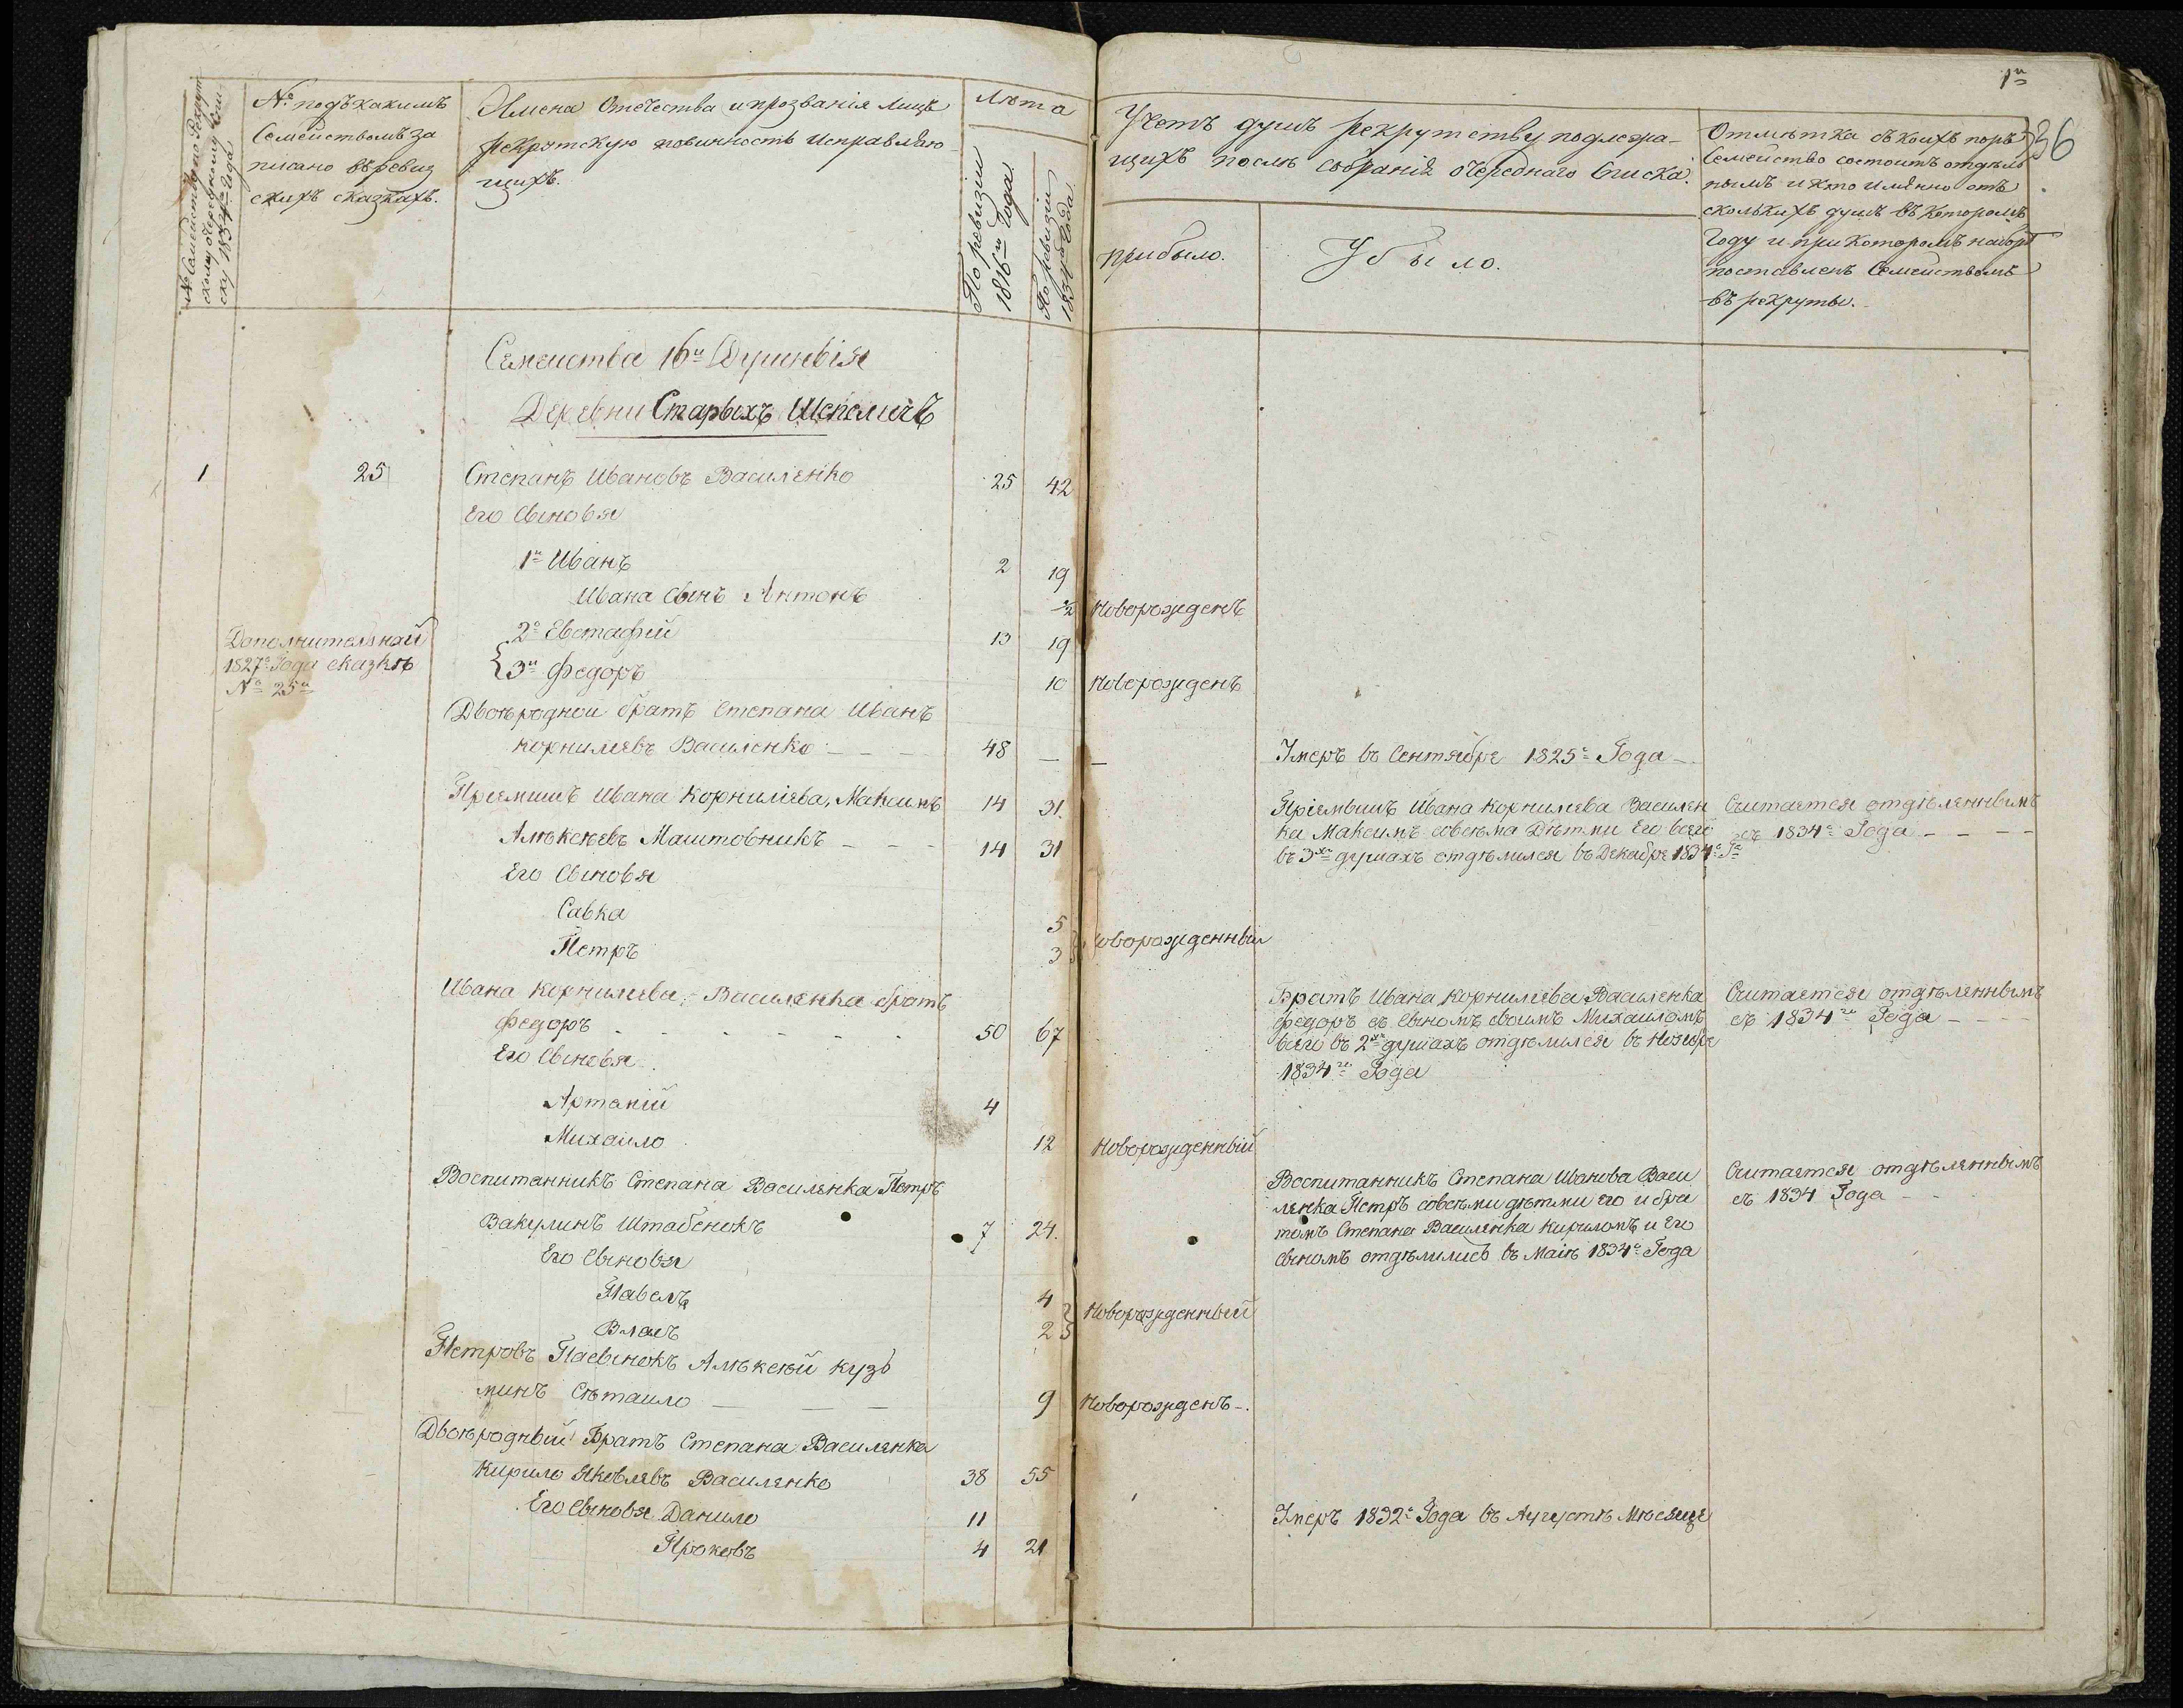 № Семейства по Рекрут
скому очередному Спи
ску 1834го Года
№ подъ какимъ
Семействомъ за
писано въ ревиз
скихъ сказкахъ.
Имена Отечества и прозванія Лицъ
рекрутскую повинность Исправляю
щихъ.
Лѣта
По ревизии
1816го Года
По ревизии
1834го Года
Учетъ душъ рекрутству подлежа-
щихъ послѣ Собранія очереднаго Списка.
прибыло.
Убыло.
Отмѣтка съ коихъ поръ
Семейство состоитъ отдѣль
нымъ и кто имянно отъ
сколькихъ душъ въ которомъ
Году и при которомъ наборѣ
поставленъ Семействомъ
въ рекруты.
1й
36
Семейства 16и Душныія
Деревни Старыхъ
1
25
Степанъ Ивановъ Василенко
25
42
Его Сыновья
1й Иванъ
2
19
Ивана Сынъ Антонъ
½
Новорожденъ
Дополнительной
1827го Года сказкѣ
№ 25й
2й Евстафий
13
19
3й Федоръ
10
Новорожденъ
Двоюродной братъ Степана Иванъ
Корнилиевъ Василенко - - -
48
—
—
Умеръ въ Сентябре 1825го Года -
Приемишъ Ивана Корнилиева, Максимъ
14
31.
Алѣксѣевъ Маштовникъ - - -
14
31
Пріемышъ Ивана Корнилиева Василен
ка Максимъ совсѣма Дѣтми Его всего
въ 3хъ душахъ отдѣлился въ Декабре 1834го Га
Считается отдѣленнымъ
съ 1834го Года - - - -
Его Сыновья
Савка
5
Петръ
3
Новорожденныи
Ивана Корнилиева, Василенка братъ
Федоръ - - - - - -
50
67
Братъ Ивана Корнилиева Василенка
Федоръ съ сыномъ своимъ Михаиломъ
всего въ 2хъ душахъ отдѣлился въ Ноябре
1834го Года
Считается отдѣленнымъ
съ 1834го Года - - -
Его Сыновья.
Артаний
4
Михаило
12
Новорожденный
Воспитанникъ Степана Василенка Петръ
Вакулинъ Штабенокъ
7
24.
Воспитанникъ Степана Иванова Васи
ленка Петръ совсѣми дѣтми его и бра
томъ Степана Василенка Кириломъ и Его
сыномъ отдѣлились въ Маiѣ 1834го Года
Считается отдѣленнымъ
съ 1834 Года - -
Его Сыновья
Павелъ
4
Власъ
2
Новорожденный
Петровъ Пасынокъ Алѣксѣй Кузь
минъ Сѣтаило — — —
9
Новорожденъ -.
Двоюродный Братъ Степана Василенка
Кирило Яковлевъ Василенко
38
55
Его Сыновья Данило
11
Умеръ 1832го Года въ Августѣ Мѣсяце
Прокопъ
4
21